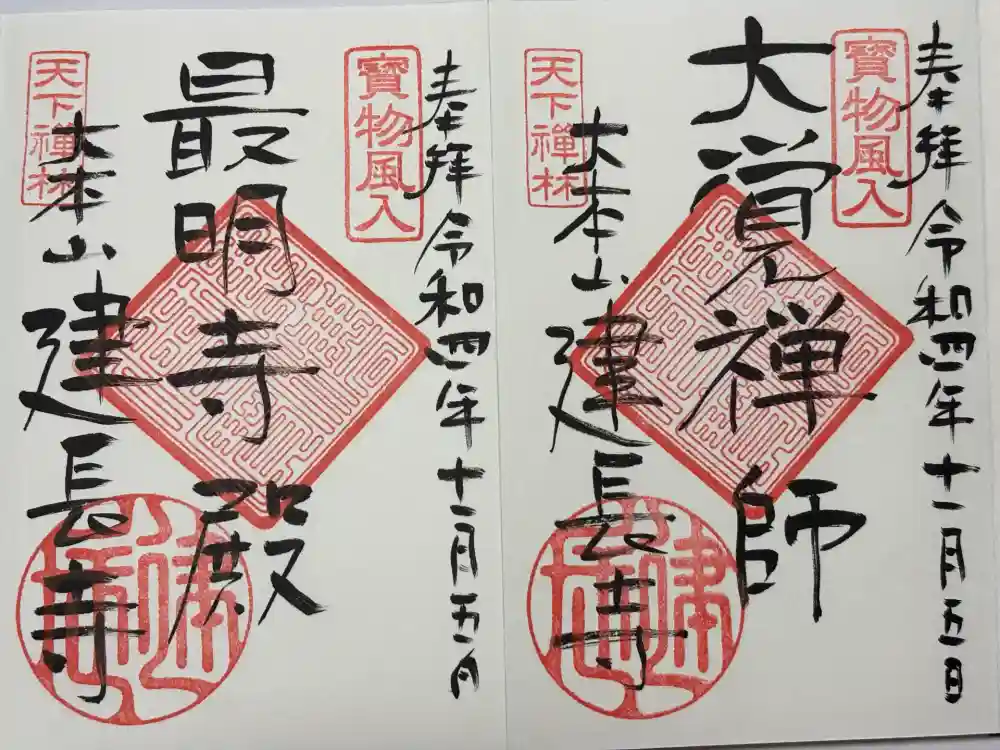 奉拝 令和四年十一月五日
寶物風入
大覚禅師
天下禪林
大本山 建長寺
建長
奉拝 令和四年十一月五日
寶物風入
最明寺殿
天下禪林
大本山 建長寺
建長